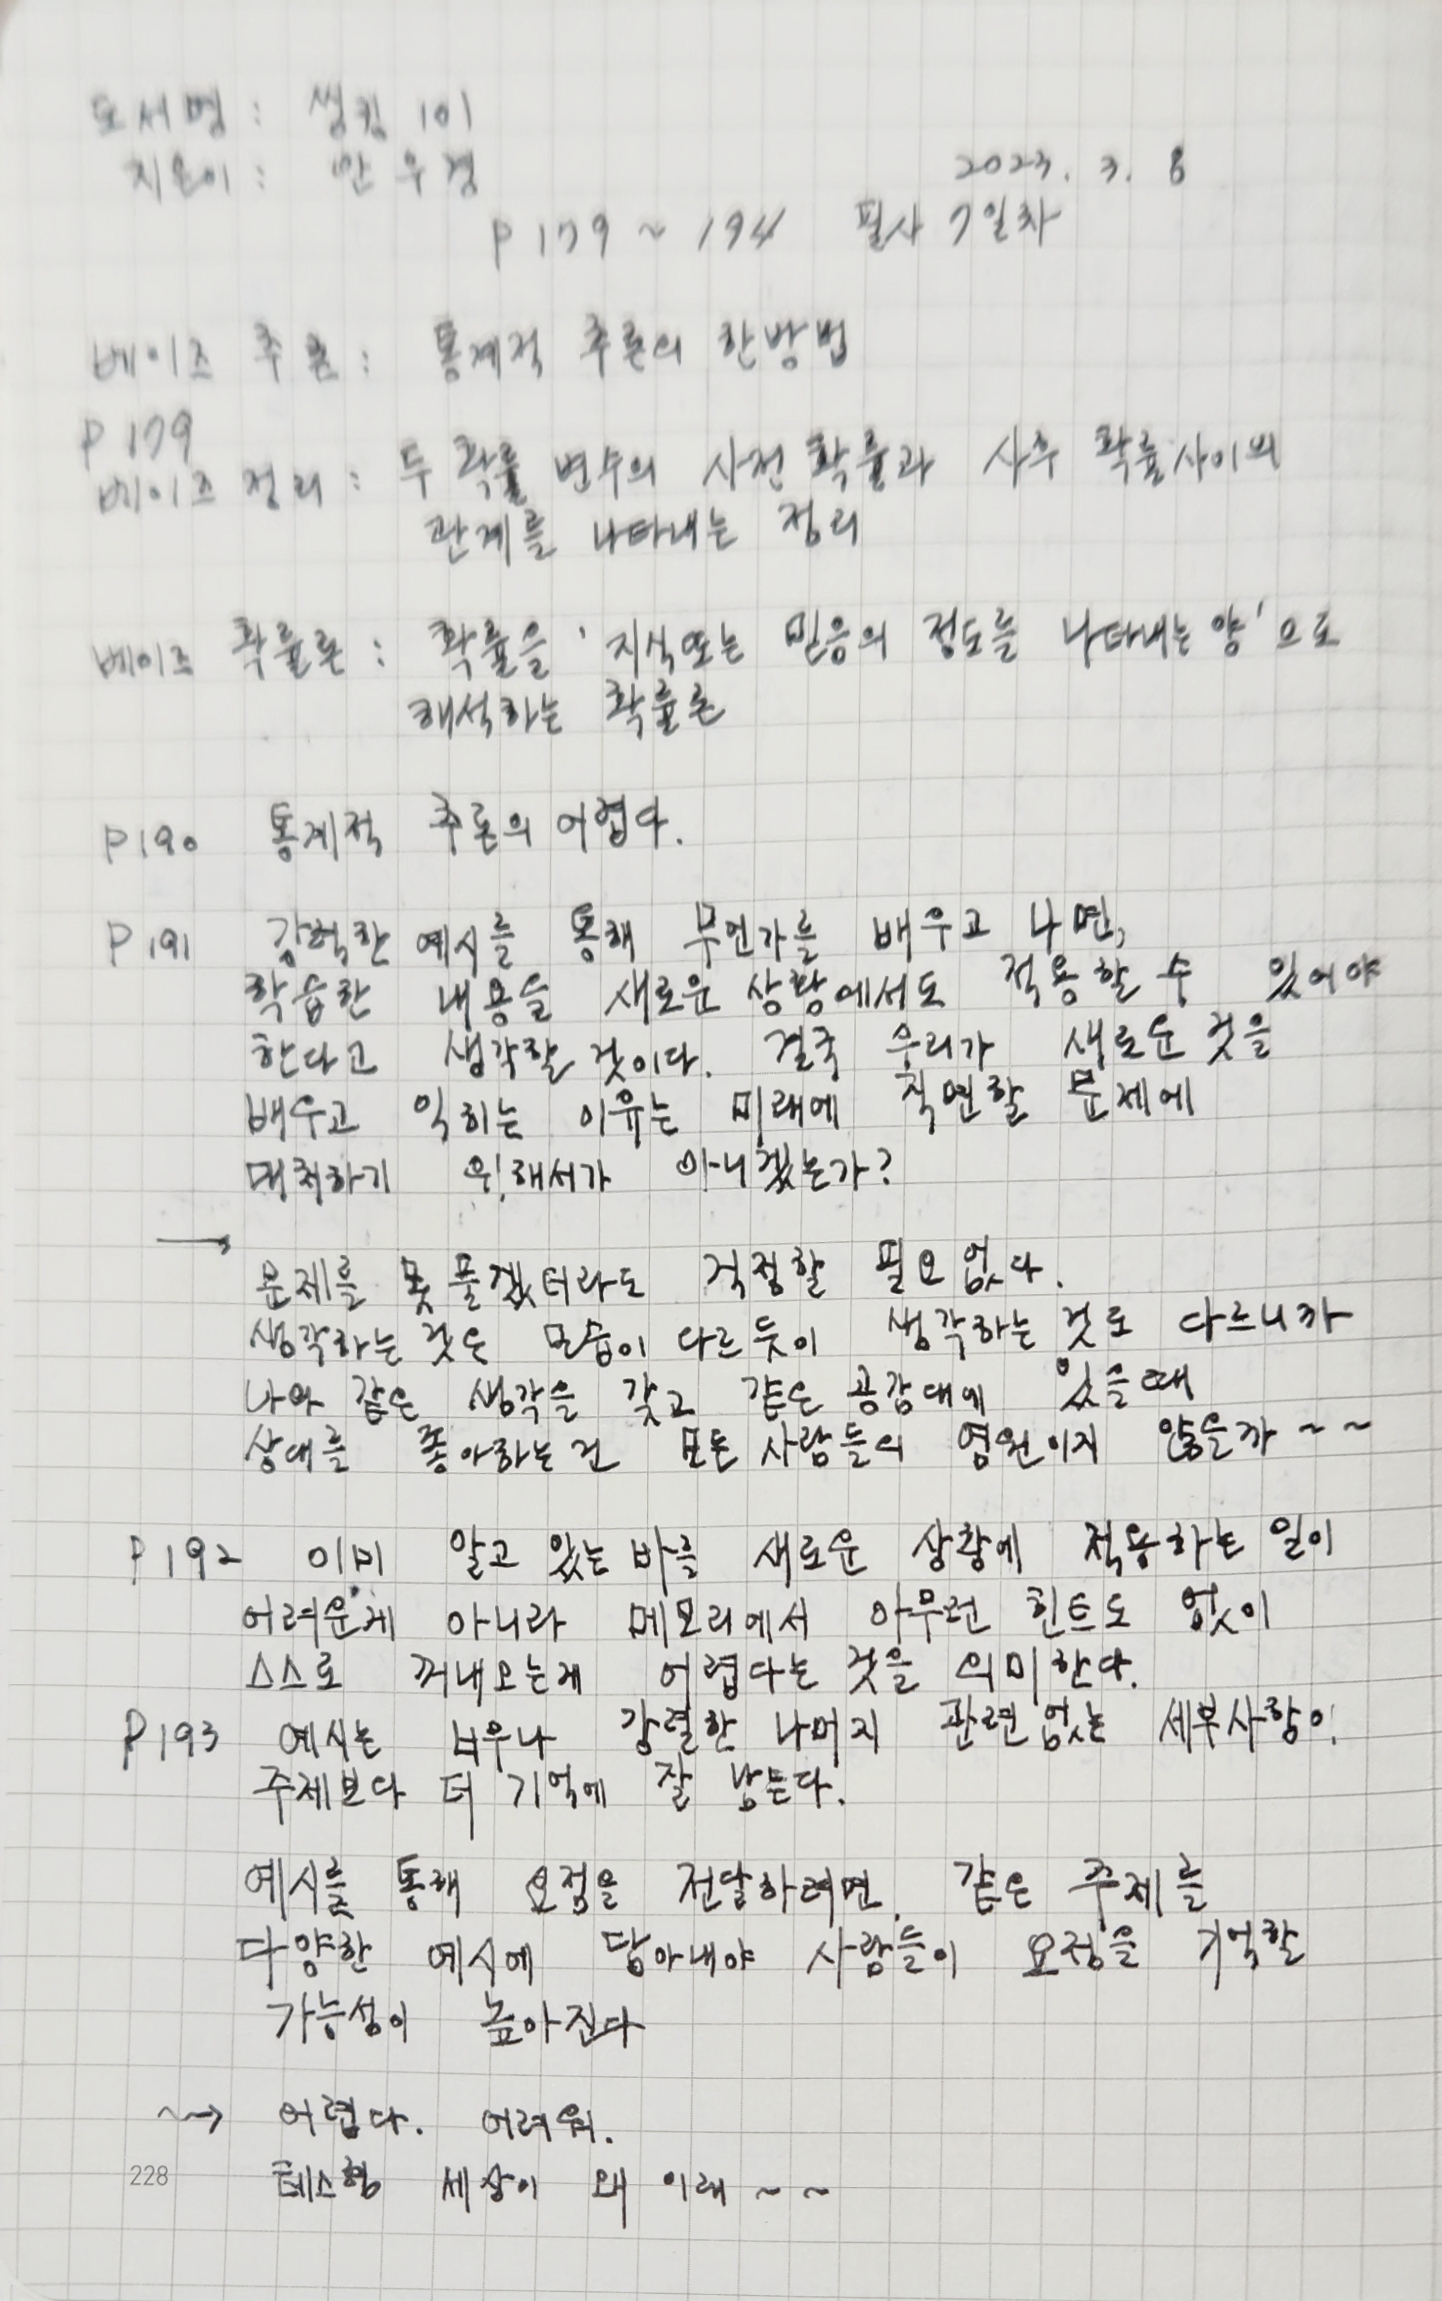 도서명 : 씽킹 101
지은이 : 안우경
2023. 3. 8
P 179 ~ 194 필사 7일차
베이즈 추론 : 통계적 추론의 한방법
P 179
베이즈 정리 : 두 확률 변수의 사전 확률과 사후 확률사이의
관계를 나타내는 정리
베이즈 확률론 : 확률을 '지식또는 믿음의 정도를 나타내는 양'으로
해석하는 확률론
P190 통계적 추론의 어렵다.
P191 강력한 예시를 통해 무언가를 배우고 나면,
학습한 내용을 새로운 상황에서도 적용할 수 있어야
한다고 생각할 것이다. 결국 우리가 새로운 것을
배우고 익히는 이유는 미래에 직면할 문제에
대처하기 위해서가 아니겠는가?
→ 문제를 못 풀겠더라도 걱정할 필요 없다.
생각하는 것은 모습이 다르듯이 생각하는 것도 다르니까
나와 같은 생각을 갖고 같은 공감대에 있을때
상대를 좋아하는건 모든 사람들의 염원이지 않을까 ~ ~
P192 이미 알고 있는 바를 새로운 상황에 적용하는 일이
어려운게 아니라 메모리에서 아무런 힌트도 없이
스스로 꺼내오는게 어렵다는 것을 의미한다.
P193 예시는 너무나 강렬한 나머지 관련없는 세부사항이
주제보다 더 기억에 잘 남는다.
예시를 통해 요점을 전달하려면, 같은 주제를
다양한 예시에 담아내야 사람들이 요점을 기억할
가능성이 높아진다
~→ 어렵다. 어려워.
테스형 세상이 왜 이래 ~ ~
228